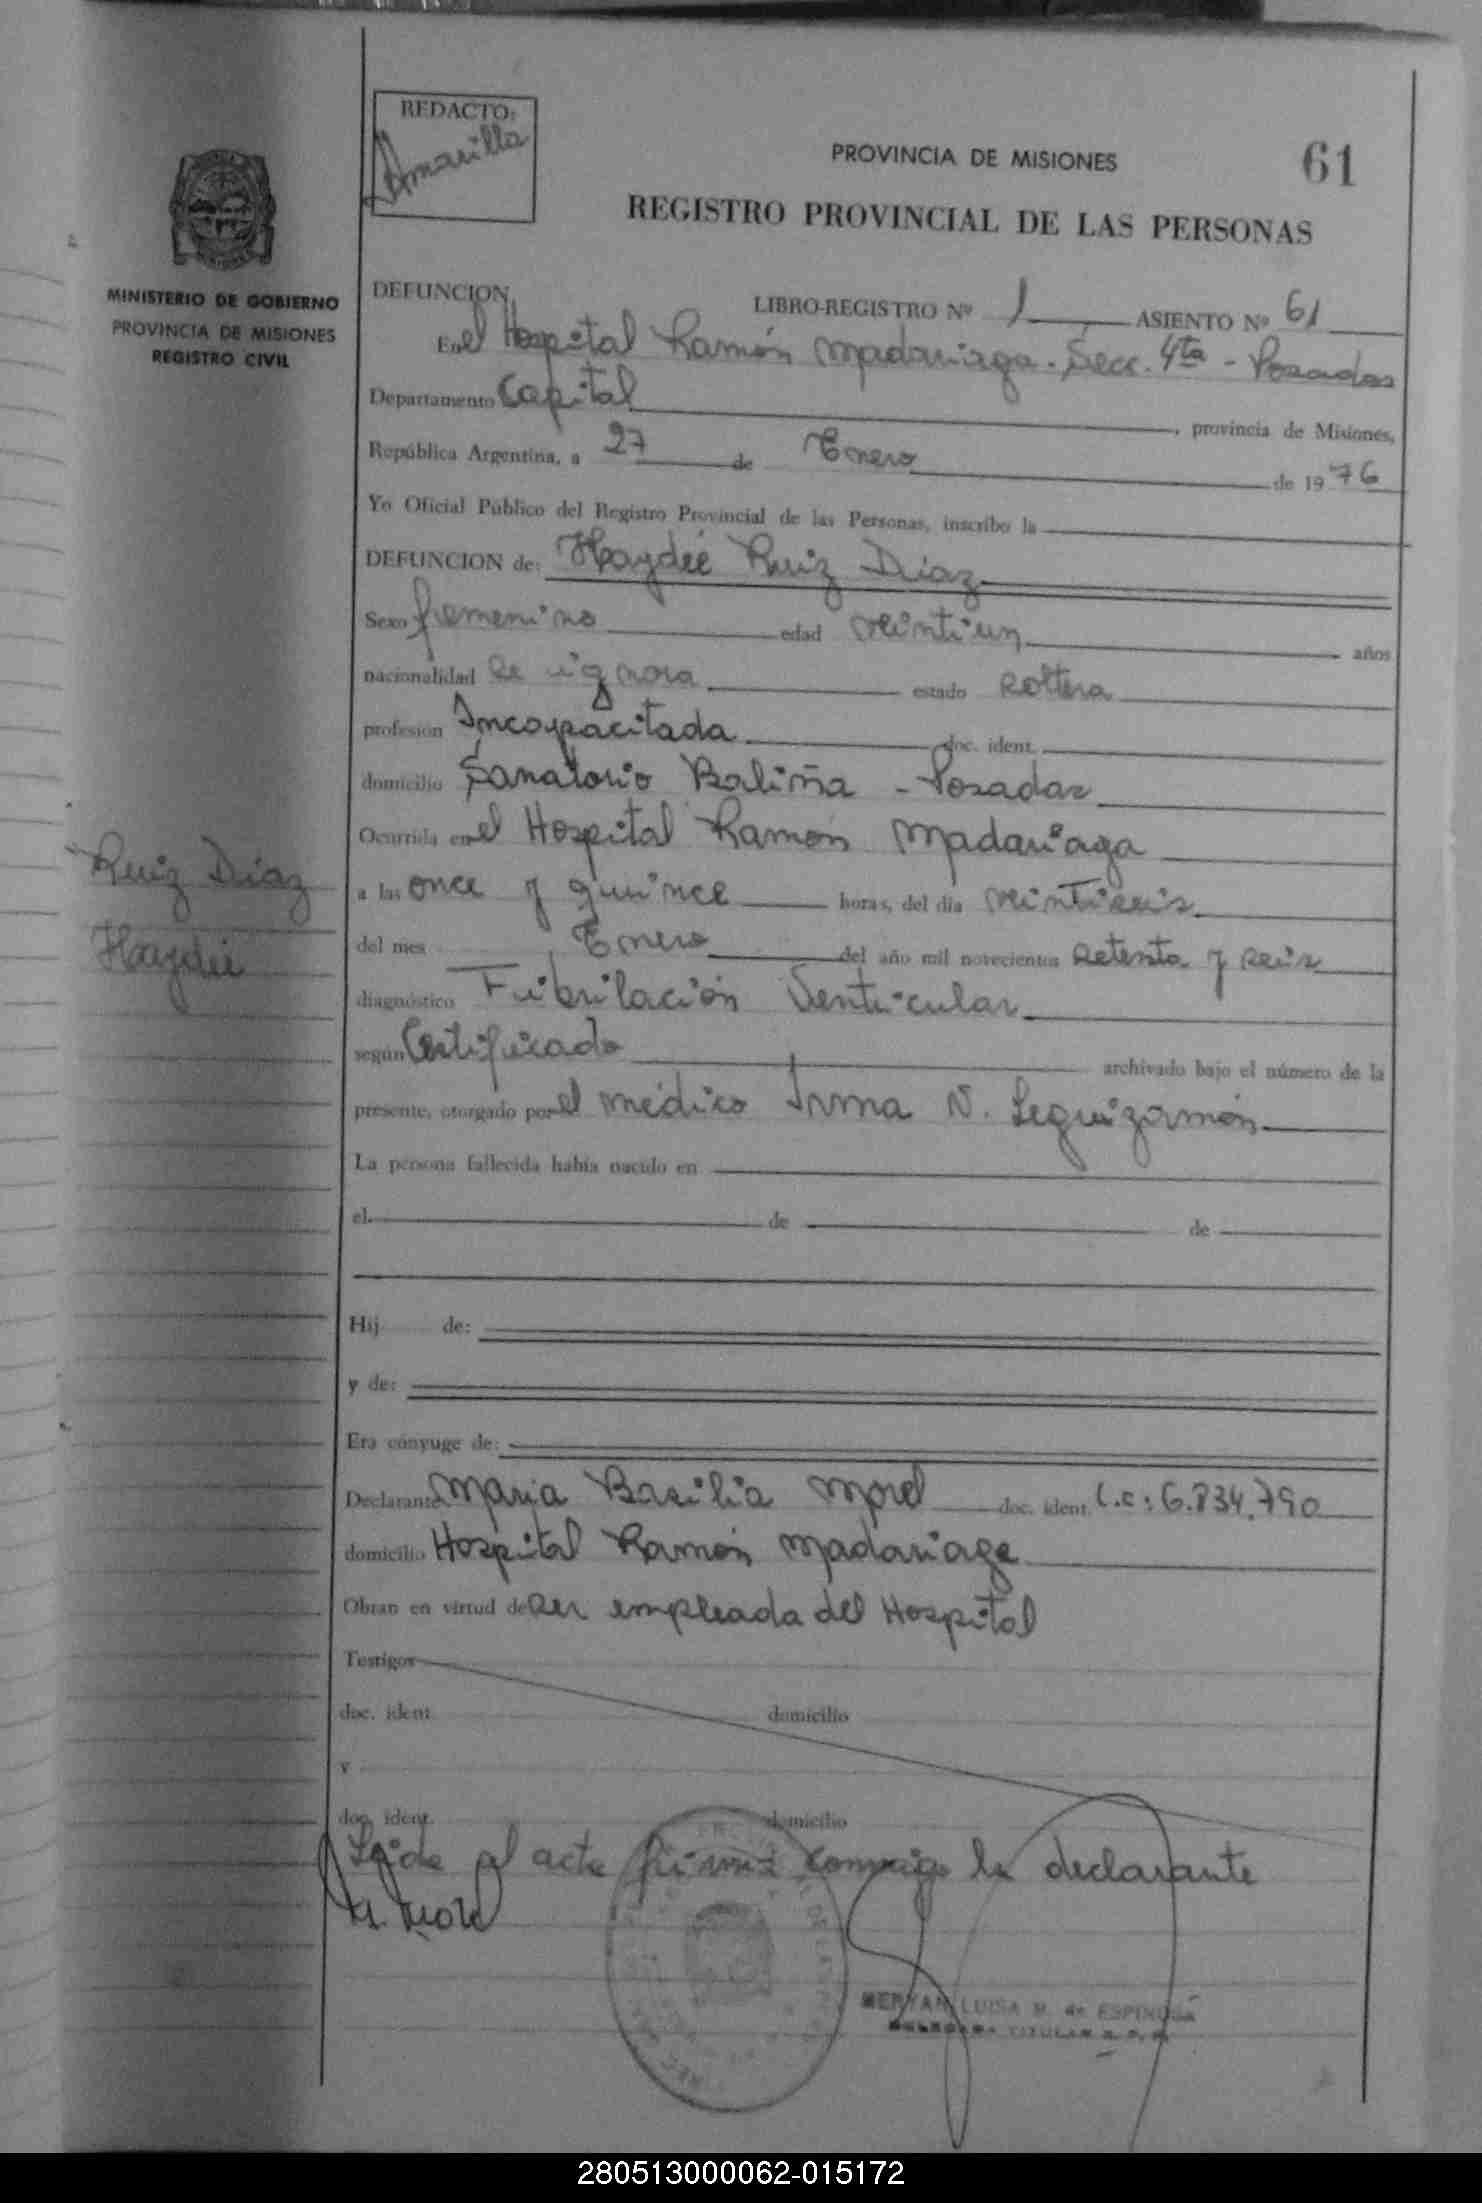 REDACTO:
Amarilla
PROVINCIA DE MISIONES
61
REGISTRO PROVINCIAL DE LAS PERSONAS
MINISTERIO DE GOBIERNO
PROVINCIA DE MISIONES
REGISTRO CIVIL
DEFUNCION
LIBRO-REGISTRO Nº 1 ASIENTO Nº 61
En el Hospital Ramón Madariaga. Secc. 4ta - Posadas
Departamento Capital, provincia de Misiones,
República Argentina, a 27 de Enero de 1976
Yo Oficial Público del Registro Provincial de las Personas, inscribo la
DEFUNCION de: Haydée Ruiz Diaz
Sexo femenino edad veintiun años
nacionalidad se ignora estado soltera
profesión Incapacitada doc. ident.
domicilio Sanatorio Baliña - Posadas
Ocurrida en el Hospital Ramón Madariaga
a las once y quince horas, del día veintiseis
del mes Enero del año mil novecientos setenta y seis
diagnóstico Fibrilación Ventricular
según Certificado archivado bajo el número de la
presente, otorgado por el médico Irma N. Leguizamón
La persona fallecida había nacido en
el de de
Hij de:
y de:
Era cónyuge de:
Ruiz Diaz
Haydée
Declarante Maria Basilia Morel doc. ident. L.C: 6.834.790
domicilio Hospital Ramón Madariaga
Obran en virtud de ser empleada del Hospital
Testigos
doc. ident. domicilio
y
doc. ident. domicilio
Leída el acta firma conmigo la declarante
M. Morel
LUISA M. de ESPINOSA
TITULAR
280513000062-015172